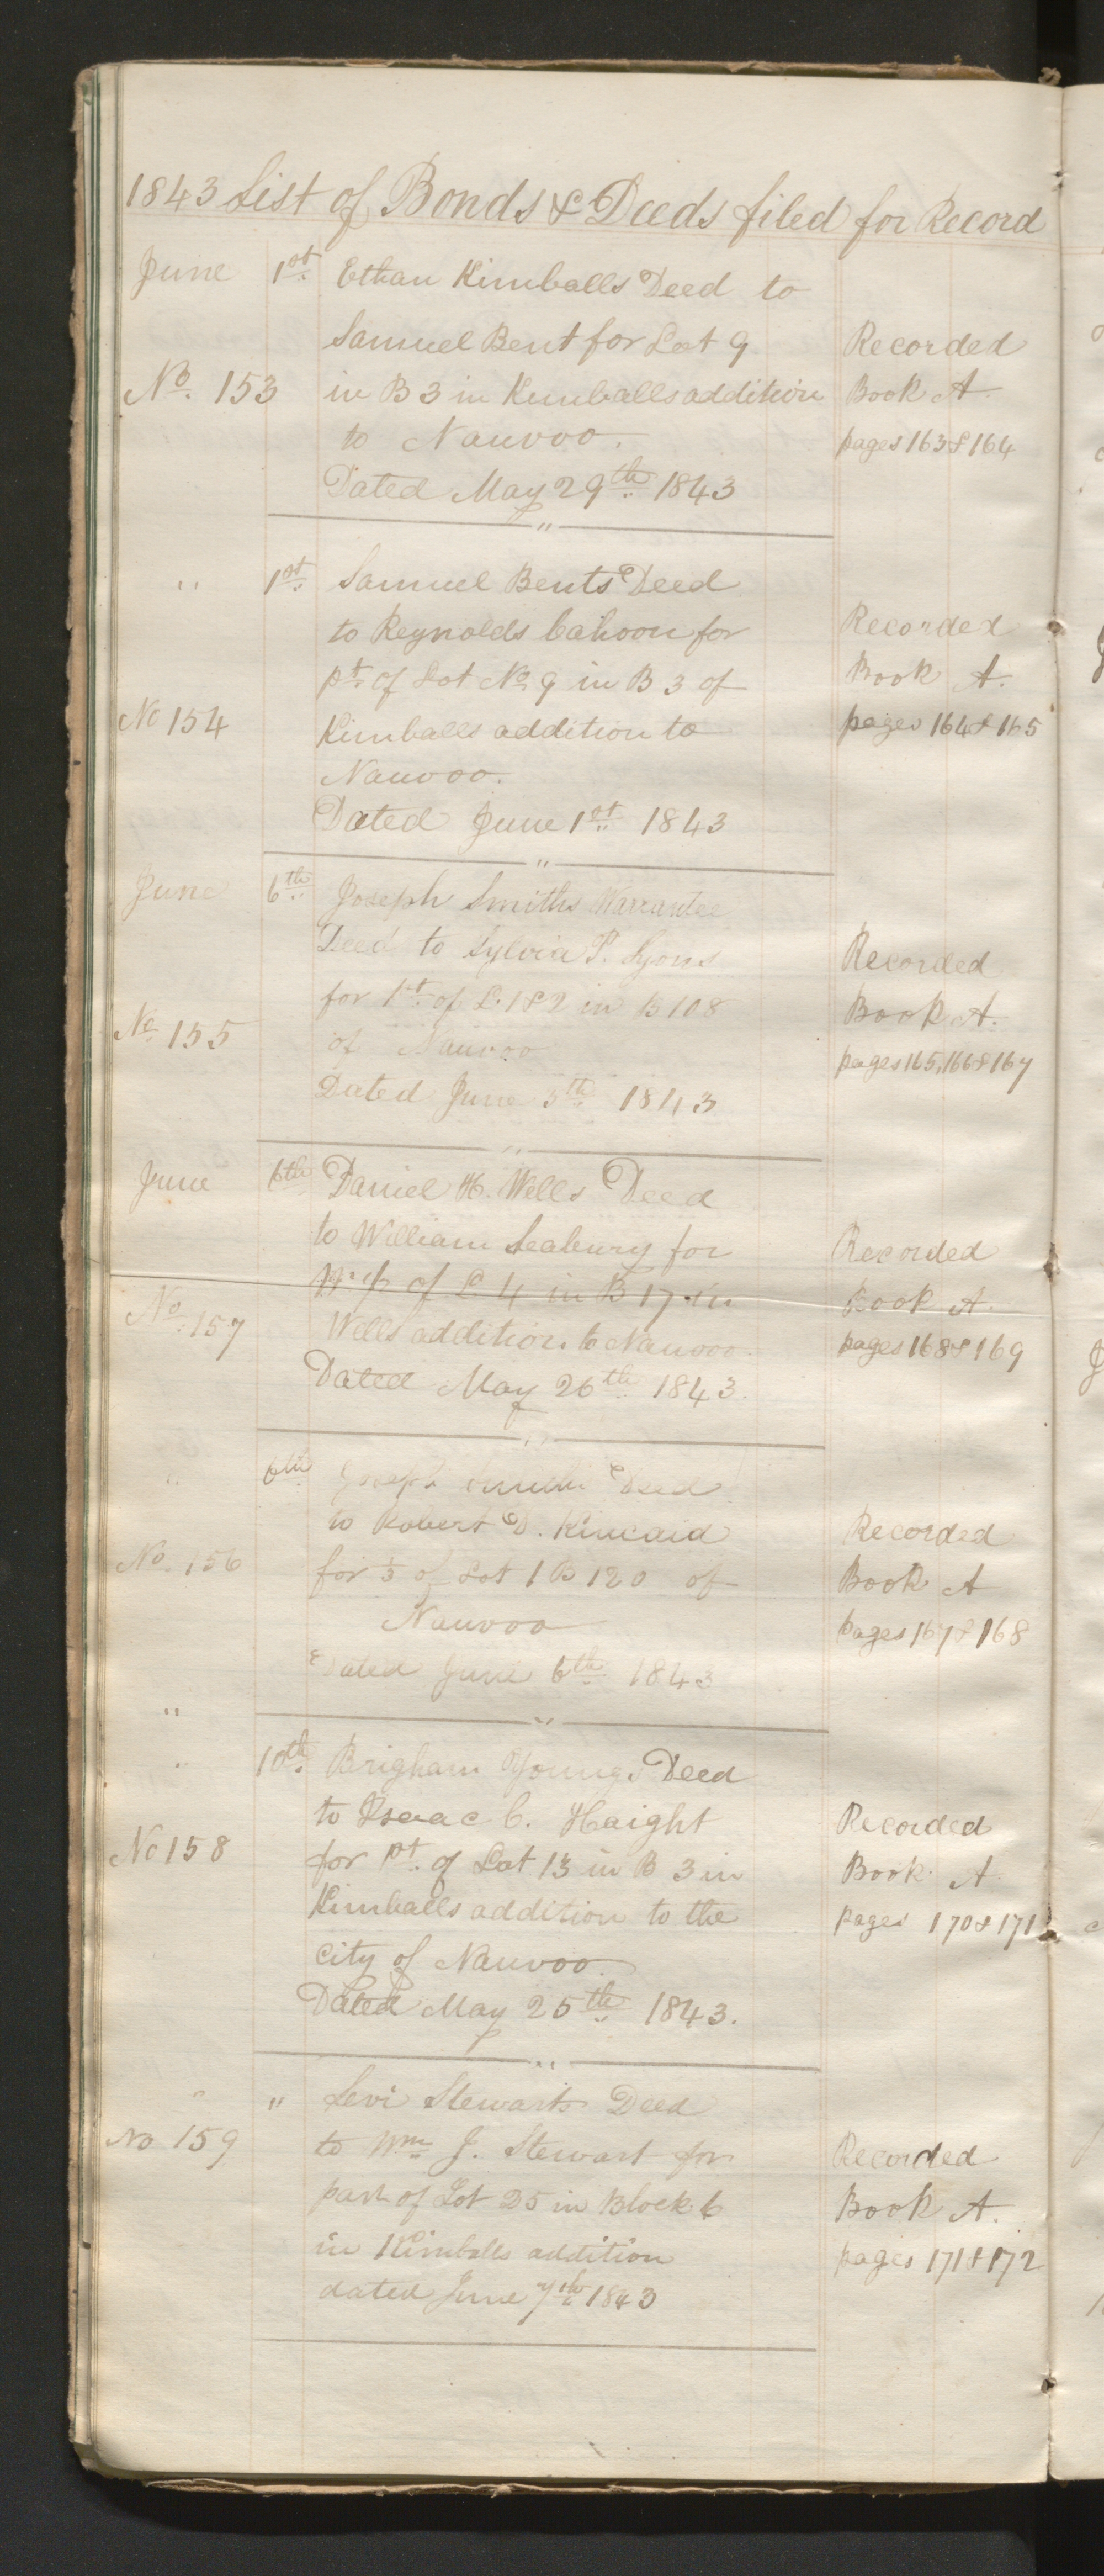 1843 List of Bonds & Deeds filed for Record
June 1st Ethan Kimballs Deed to
Samuel Bent for Lot 9 Recorded
No. 153 in B 3 in Kimballs addition Book A.
to Nauvoo. pages 163 & 164
Dated May 29th 1843
" 1st Samuel Bents Deed
to Reynolds Cahoon for Recorded
pt. of Lot No 9 in B 3 of Book A.
No 154 Kimballs addition to pages 164 & 165
Nauvoo.
Dated June 1st 1843
June 6th Joseph Smiths Warrantee
Deed to Sylvia P. Lyons Recorded
for Pt. of L. 1 & 2 in B 108 Book A.
No. 155 of Nauvoo pages 165, 166 & 167
Dated June 5th 1843
June 6th Daniel H. Wells Deed
to William Seabury for Recorded
of L 4 in B 17 in Book A.
No. 157 Wells addition to Nauvoo. pages 168 & 169
Dated May 26th 1843.
" 6th Joseph Smiths Deed
to Robert D. Kincaid Recorded
No. 156 for of Lot 1 B 120 of Book A
Nauvoo pages 167 & 168
Dated June 6th 1843
"
" 10th Brigham Youngs Deed
to Isaac C. Haight Recorded
No 158 for Pt. of Lot 13 in B 3 in Book A
Kimballs addition to the pages 170 & 171
City of Nauvoo.
Dated May 25th 1843.
" " Levi Stewarts Deed
No 159 to Wm J. Stewart for Recorded
part of Lot 25 in Block 6 Book A.
in Kimballs addition pages 171 & 172
dated June 7th 1843